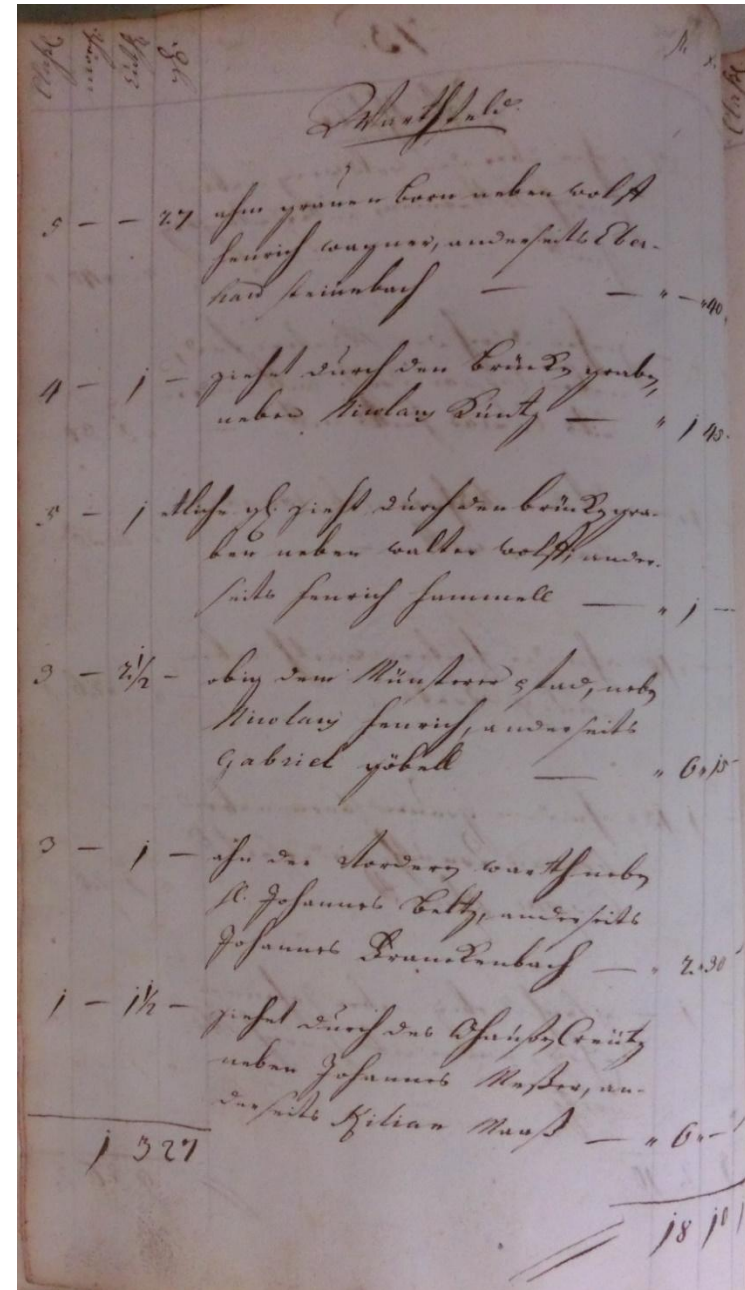 13.
Warthfeld
5 — — 27 ahm grauen born neben wolff
henrich wagner, anderseits Eber-
hard steinebach — — " — " 40
4 — 1 — ziehet durch den Brücken graben,
neben Nicolaus Küntz — " 1 45.
5 — 1 etliche gl. zieht durch den brücken gra-
ben neben walter wolff, ander-
seits henrich hammell — " 1 —
3 — 2 1/2 — obig dem Münsterer pfad, neben
Nicolaus henrich, anderseits
Gabriel göbell — " 6 " 15
3 — 1 — ahn der Vordern warth neben
Johannes Beltz, anderseits
Johannes Kranckenbach — " 2 " 30
1 — 1 1/2 — ziehet durch das Creütz
neben Johannes Meßer, an-
derseits Kilian Maaß — " 6 " —
1 3 27
18 10